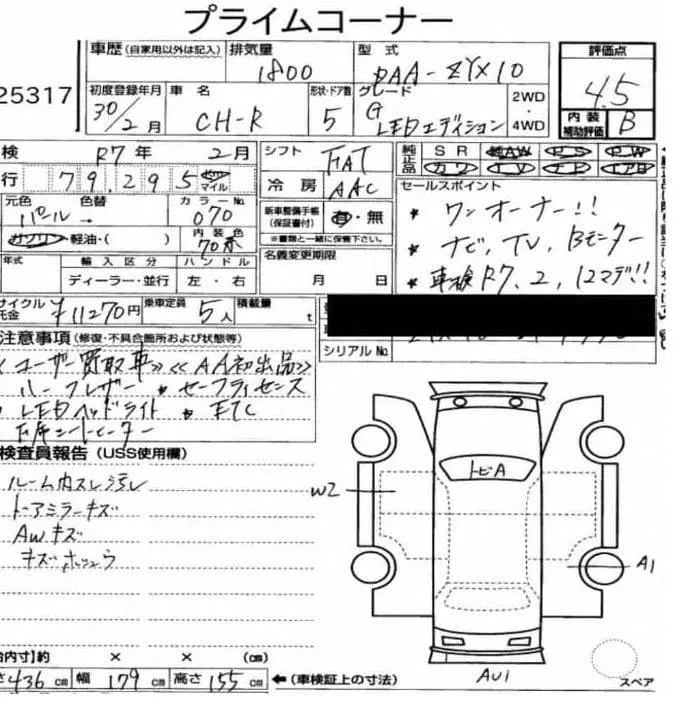 プライムコーナー
25317
車歴 (自家用以外は記入) 排気量 1800 型式 DAA-ZYX10
評価点 4.5
内装補助評価 B
初度登録年月 30/2月 車名 CH-R 形状・ドア数 5 グレード G LEDエディション 2WD・4WD
検 R7年 2月 シフト FAT
純正品 SR AW PS PW カワ TV ナビ エアB
行 79,295 km マイル
冷房 AAC
セールスポイント
元色 パール → 色替 カラーNo. 070
新車整備手帳 (保証書付) 有・無
※書類と一緒に保管下さい。
* ワンオーナー!!
* ナビ, TV, Bモニター
* 車検R7, 2, 12マデ!!
ガソリン・軽油・( ) 内装色 70 茶
名義変更期限 月 日
年式 輸入区分 ハンドル
ディーラー・並行 左・右
サイクル托金 ¥11270円 乗車定員 5人 積載量 t
シリアルNo.
注意事項 (修復・不具合箇所および状態等)
<ユーザー買取車>> <<AA初出品>>
ハーフレザー * セーフティセンス
LEDヘッドライト * ETC
シートヒーター
検査員報告 (USS使用欄)
ルーム内スレ汚レ
ドアミラーキズ
AWキズ
キズホシュウ
トビA
W2
A1
AU1
スペア
内寸】約 × × (cm)
さ436 cm 幅 179 cm 高さ 155 cm ←(車検証上の寸法)